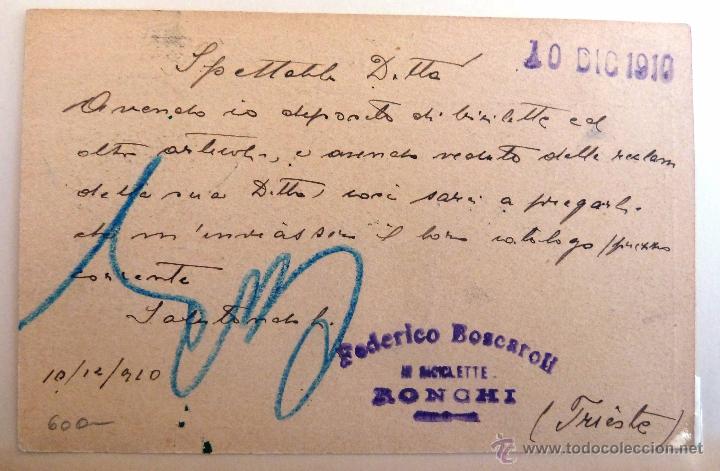 10 DIC 1910
Spettabile Ditta
Avendo io deposito di biciclette ed
altri articoli, e avendo veduto delle reclam
della sua Ditta, così sarei a pregarli
che m'inviassero il loro catalogo / prezzo
corrente
Salutandoli
10/12/910
Federico Boscaroli
BICICLETTE
RONCHI
(Trieste)
600-
todocoleccion
www.todocoleccion.net